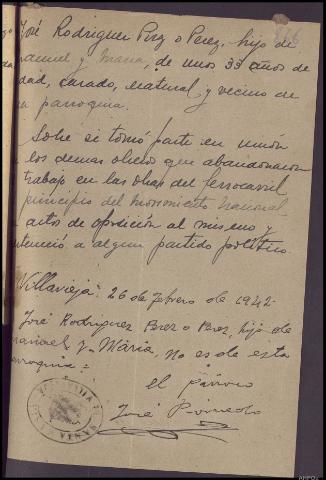 José Rodriguez Prez o Perez, hijo de
Manuel y Maria, de unos 33 años de
edad, casado, natural y vecino de
la parroquia.
Sobre si tomó parte en unión
los demas obreros que abandonaron
trabajo en las obras del ferrocarril
principio del movimiento Nacional,
actos de oposición al mismo y
perteneció a algun partido politico.
Villavieja 26 de febrero de 1942.
José Rodriguez Perez o Prez, hijo de
Manuel y Maria, no es de esta
parroquia.
El párroco
José